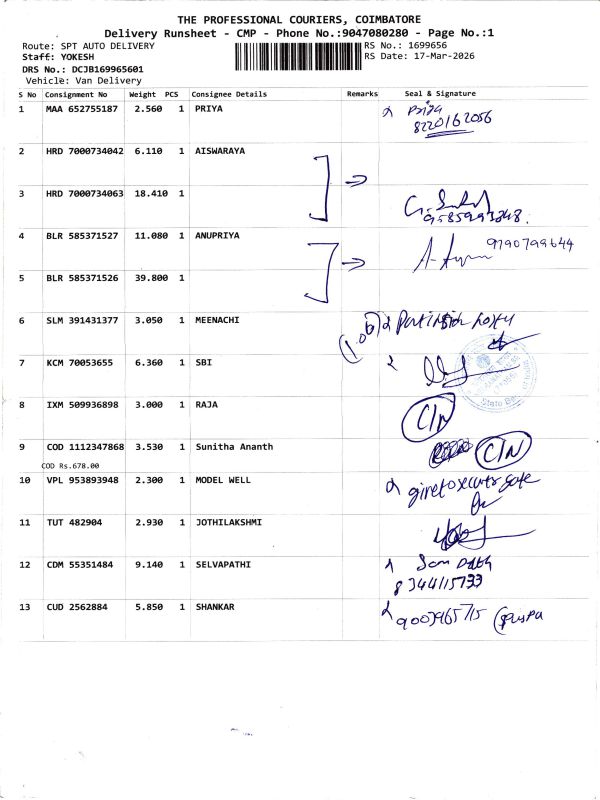 THE PROFESSIONAL COURIERS, COIMBATORE
Delivery Runsheet - CMP - Phone No.:9047080280 - Page No.:1
Route: SPT AUTO DELIVERY
RS No.: 1699656
Staff: YOKESH
RS Date: 17-Mar-2026
DRS No.: DCJB169965601
Vehicle: Van Delivery
S No Consignment No Weight PCS Consignee Details Remarks Seal & Signature
1 MAA 652755187 2.560 1 PRIYA Priya
8220162056
2 HRD 7000734042 6.110 1 AISWARAYA
3 HRD 7000734063 18.410 1
9585993268
4 BLR 585371527 11.080 1 ANUPRIYA 9790799644
5 BLR 585371526 39.800 1
6 SLM 391431377 3.050 1 MEENACHI
7 KCM 70053655 6.360 1 SBI
8 IXM 509936898 3.000 1 RAJA C/N
9 COD 1112347868 3.530 1 Sunitha Ananth C/N
COD Rs.678.00
10 VPL 953893948 2.300 1 MODEL WELL
11 TUT 482904 2.930 1 JOTHILAKSHMI
12 CDM 55351484 9.140 1 SELVAPATHI
8344115733
13 CUD 2562884 5.850 1 SHANKAR 9003965715